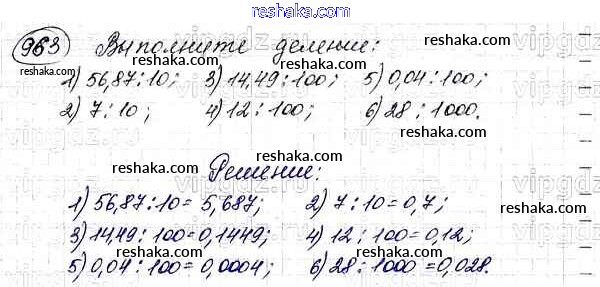 reshaka.com
963 Выполните деление:
1) 56,87:10; 3) 14,49:100; 5) 0,04:100;
2) 7:10; 4) 12:100; 6) 28:1000.
reshaka.com reshaka.com reshaka.com
Решение:
1) 56,87:10=5,687; 2) 7:10=0,7;
3) 14,49:100=0,1449; 4) 12:100=0,12;
5) 0,04:100=0,0004; 6) 28:1000=0,028.
reshaka.com